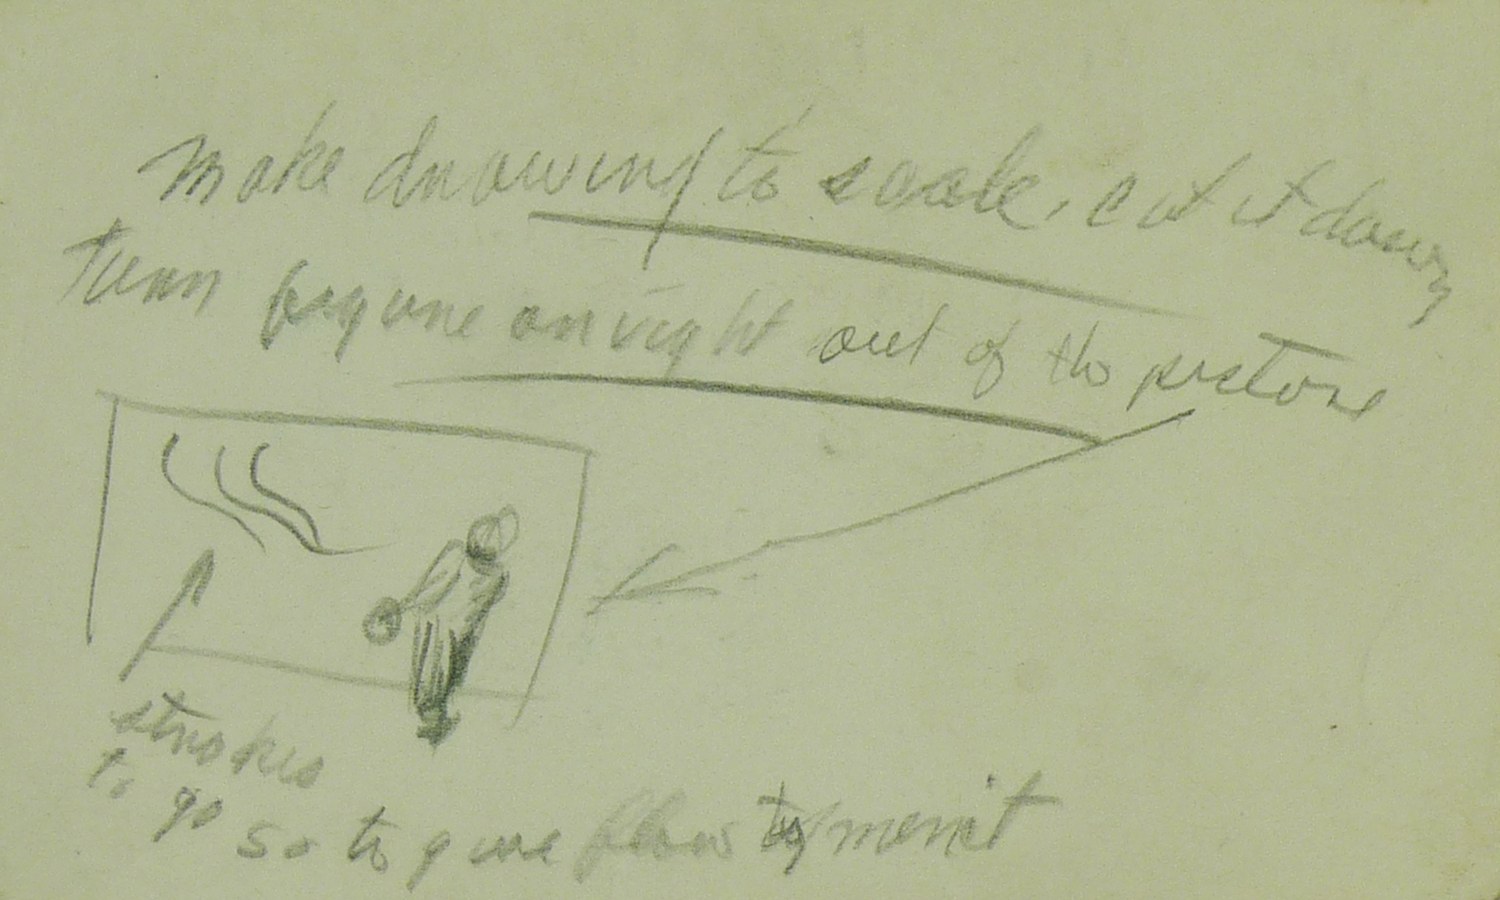 make drawing to scale, cut it down,
turn figure on right out of the picture
strokes
to go
so to give flow to